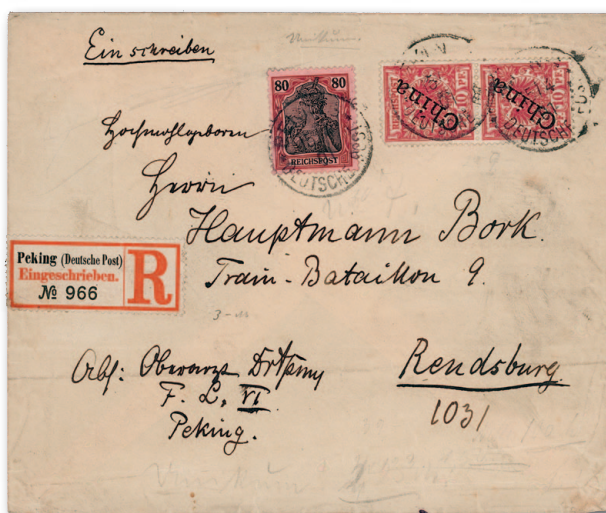 Einschreiben
80 80
REICHSPOST
China China
10 PF. 10 PF.
DEUTSCHE POST
Hochwohlgeboren
Herrn
Hauptmann Bork.
Train-Bataillon 9.
Peking (Deutsche Post)
Eingeschrieben.
№ 966
R
Rendsburg.
1031
Abs: Oberarzt
F. L. VI
Peking.